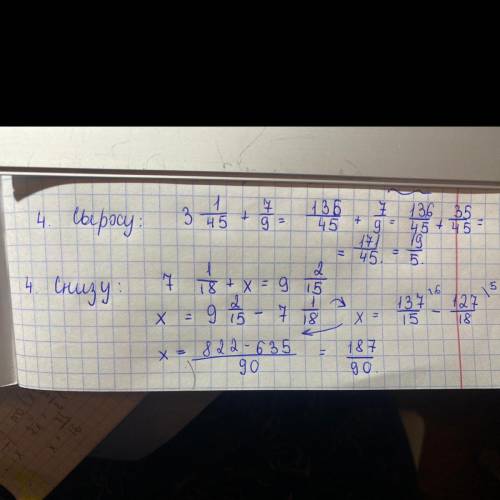 4. Сыросу: 3 1/45 + 7/9 = 136/45 + 7/9 = 136/45 + 35/45 =
= 171/45 = 19/5.
4. Снизу: 7 1/18 + x = 9 2/15
x = 9 2/15 - 7 1/18 x = 137/15 \6 - 127/18 \5
x = 822 - 635/90 = 187/90